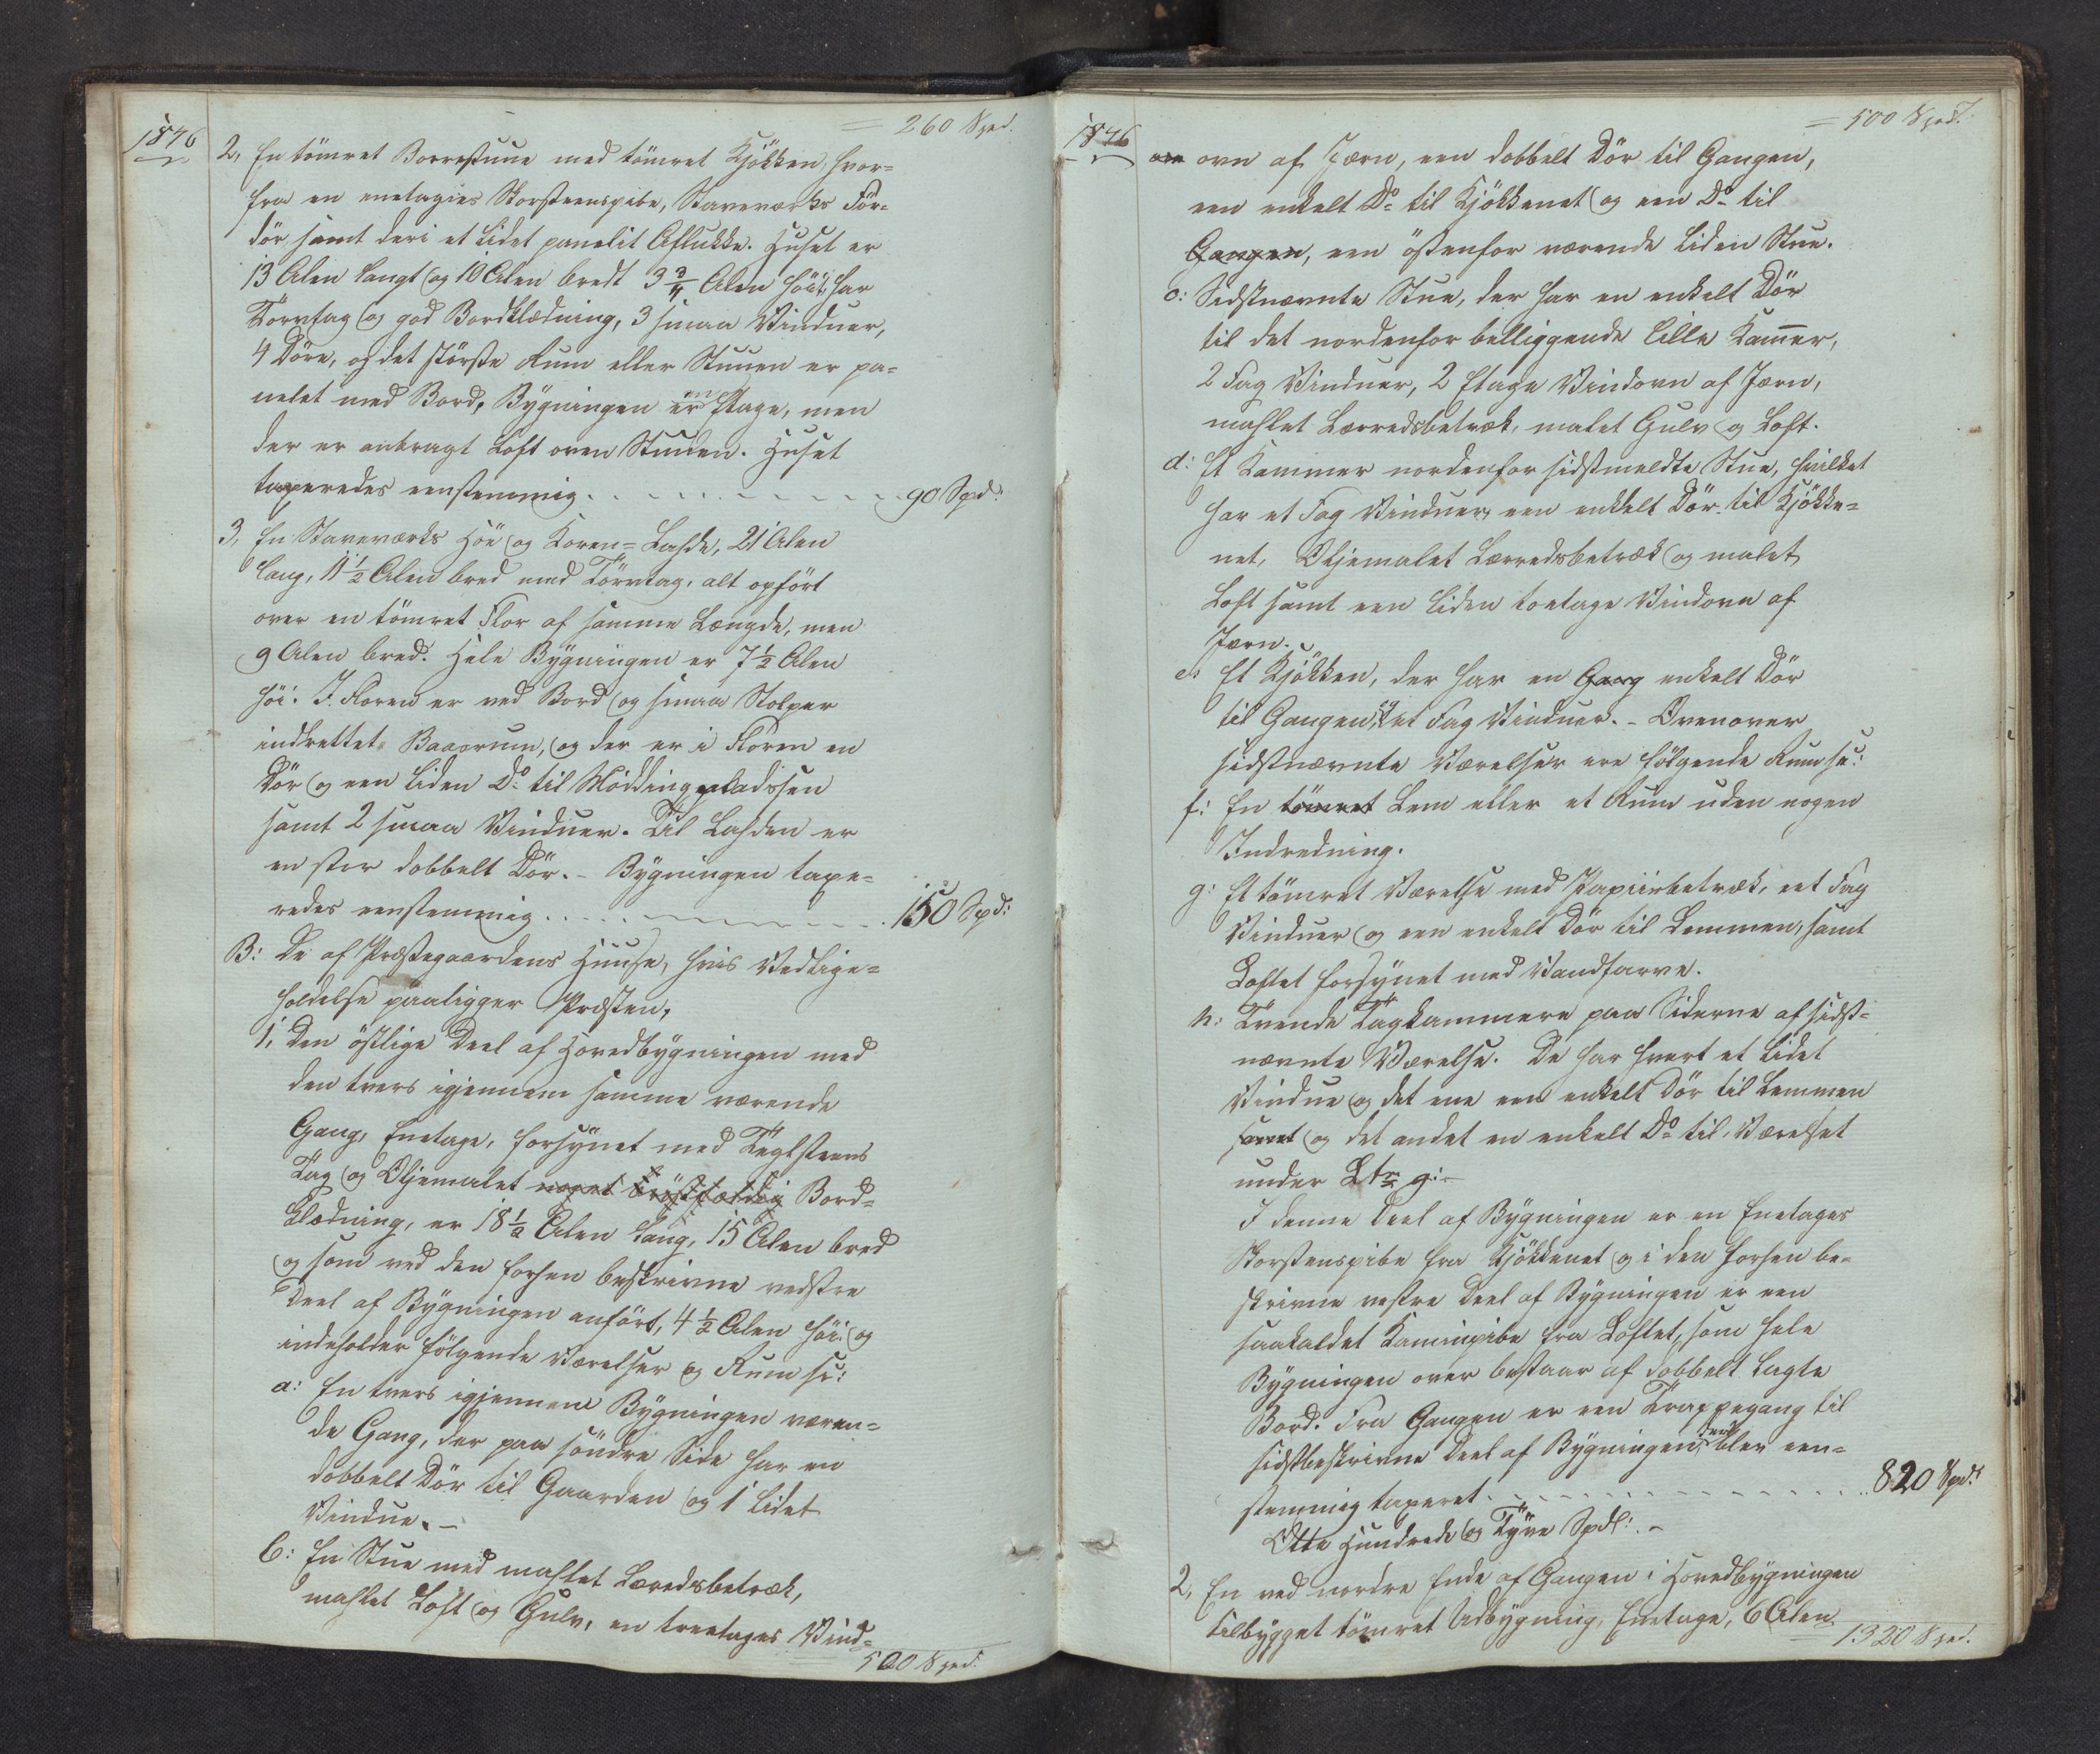 1846
= 260 Spd.
2, En tömret Borrestuue med tömret Kjökken, hvor=
fra en enetagies Skorsteenspibe, Stavværks För=
dör samt deri et lidet panelit Aflukke. Huset er
13 Alen langt og 10 Alen bredt 3 3/4 Alen höit, har
Törvtag og god Bordklædning, 3 smaa Vinduer,
4 Döre, og det störste Rum eller Stuuen er pa=
nelet med Bord, Bygningen er en Etage, men
der er anbragt Loft oven Stuuen. Huset
taxeredes eenstemmig . . . . . . . . . . . . . 90 Spd:
3, En Stavværks Höe og Koren=Lahde, 21 Alen
lang, 11 1/2 Alen bred med Törvtag, alt opfört
over en tömret Flor af samme Længde, men
9 Alen bred. Hele Bygningen er 7 1/2 Alen
höi. I Floren er ved Bord og smaa Stolper
indrettet Baasrum, og der er i Floren en
Dör og een liden Do til Möddingpladssen
samt 2 smaa Vinduer. Til Lahden er
en stor dobbelt Dör. – Bygningen taxe=
redes eenstemmig . . . . . . . . . . . 150 Spd:
B: De af Præstegaardens Huuse, hvis Vedlige=
holdelse paaligger Præsten,
1, Den östlige Deel af Hovedbygningen med
den tvers igjennem samme værende
Gang, Enetage, forsynet med Teglsteens
Tag og Oljemalet noget bröstfældig Bord=
klædning, er 18 1/2 Alen lang, 15 Alen bred
og som ved den forhen beskrivne vestre
Deel af Bygningen anfört, 4 1/2 Alen höi og
indeholder fölgende Værelser og Rum se:
a: En tvers igjennem Bygningen væren=
de Gang, der paa söndre Side har en
dobbelt Dör til Gaarden og 1 lidet
Vindue. –
b: En Stue med mahlet Lærredsbetræk,
mahlet Loft og Gulv, en treetages Vind=
500 Spd.
1846
= 500 Spd.
ovn ovn af Jærn, een dobbelt Dör til Gangen,
een enkelt Do til Kjökkenet og een Do til
Gangen, een östenfor værende liden Stue.
c: Sidstnævnte Stue, der har en enkelt Dör
til det nordenfor belliggende lille Kammer,
2 Fag Vinduer, 2 Etage Vindovn af Jærn,
mahlet Lærredsbetræk, malet Gulv og Loft.
d: Et Kammer nordenfor sidstmeldte Stue, hvilket
har et Fag Vinduer, een enkelt Dör til Kjökke=
net, Oljemalet Lærredsbetræk og malet
Loft samt een liden toetage Vindovn af
Jærn.
e: Et Kjökken, der har en Gang enkelt Dör
til Gangen, og et Fag Vinduer. – Ovenover
sidstnævnte Værelser ere fölgende Rum se:
f: En tömret Lem eller et Rum uden nogen
Indredning.
g: Et tömret Værelse med Papiirbetræk, eet Fag
Vinduer og een enkelt Dör til Lemmen, samt
Loftet forsynet med Vandfarve.
h: Tvende Tagkammere paa Siderne af sidst=
nævnte Værelse. De har hvert et lidet
Vindue og det ene een enkelt Dör til Lemmen
samt og det andet en enkelt Do til Værelset
under Ltr g: –
I denne Deel af Bygningen er en Enetages
Skorstenspibe fra Kjökkenet og i den forhen be=
skrivne vestre Deel af Bygningen er een
saakaldet Kaminpibe fra Loftet, som hele
Bygningen over bestaar af dobbelt lagte
Bord. Fra Gangen er een Trappegang til
sidstbeskrivne Deel af Bygningen, der blev een=
stemmig taxeret . . . . . . . . . . . . . 820 Spd:
Otte Hundrede og Tyve Spdl: –
2, En ved nordre Ende af Gangen i Hovedbygningen
tilbygget tömret Udbygning, Enetage, 6 Alen
= 1320 Spd.